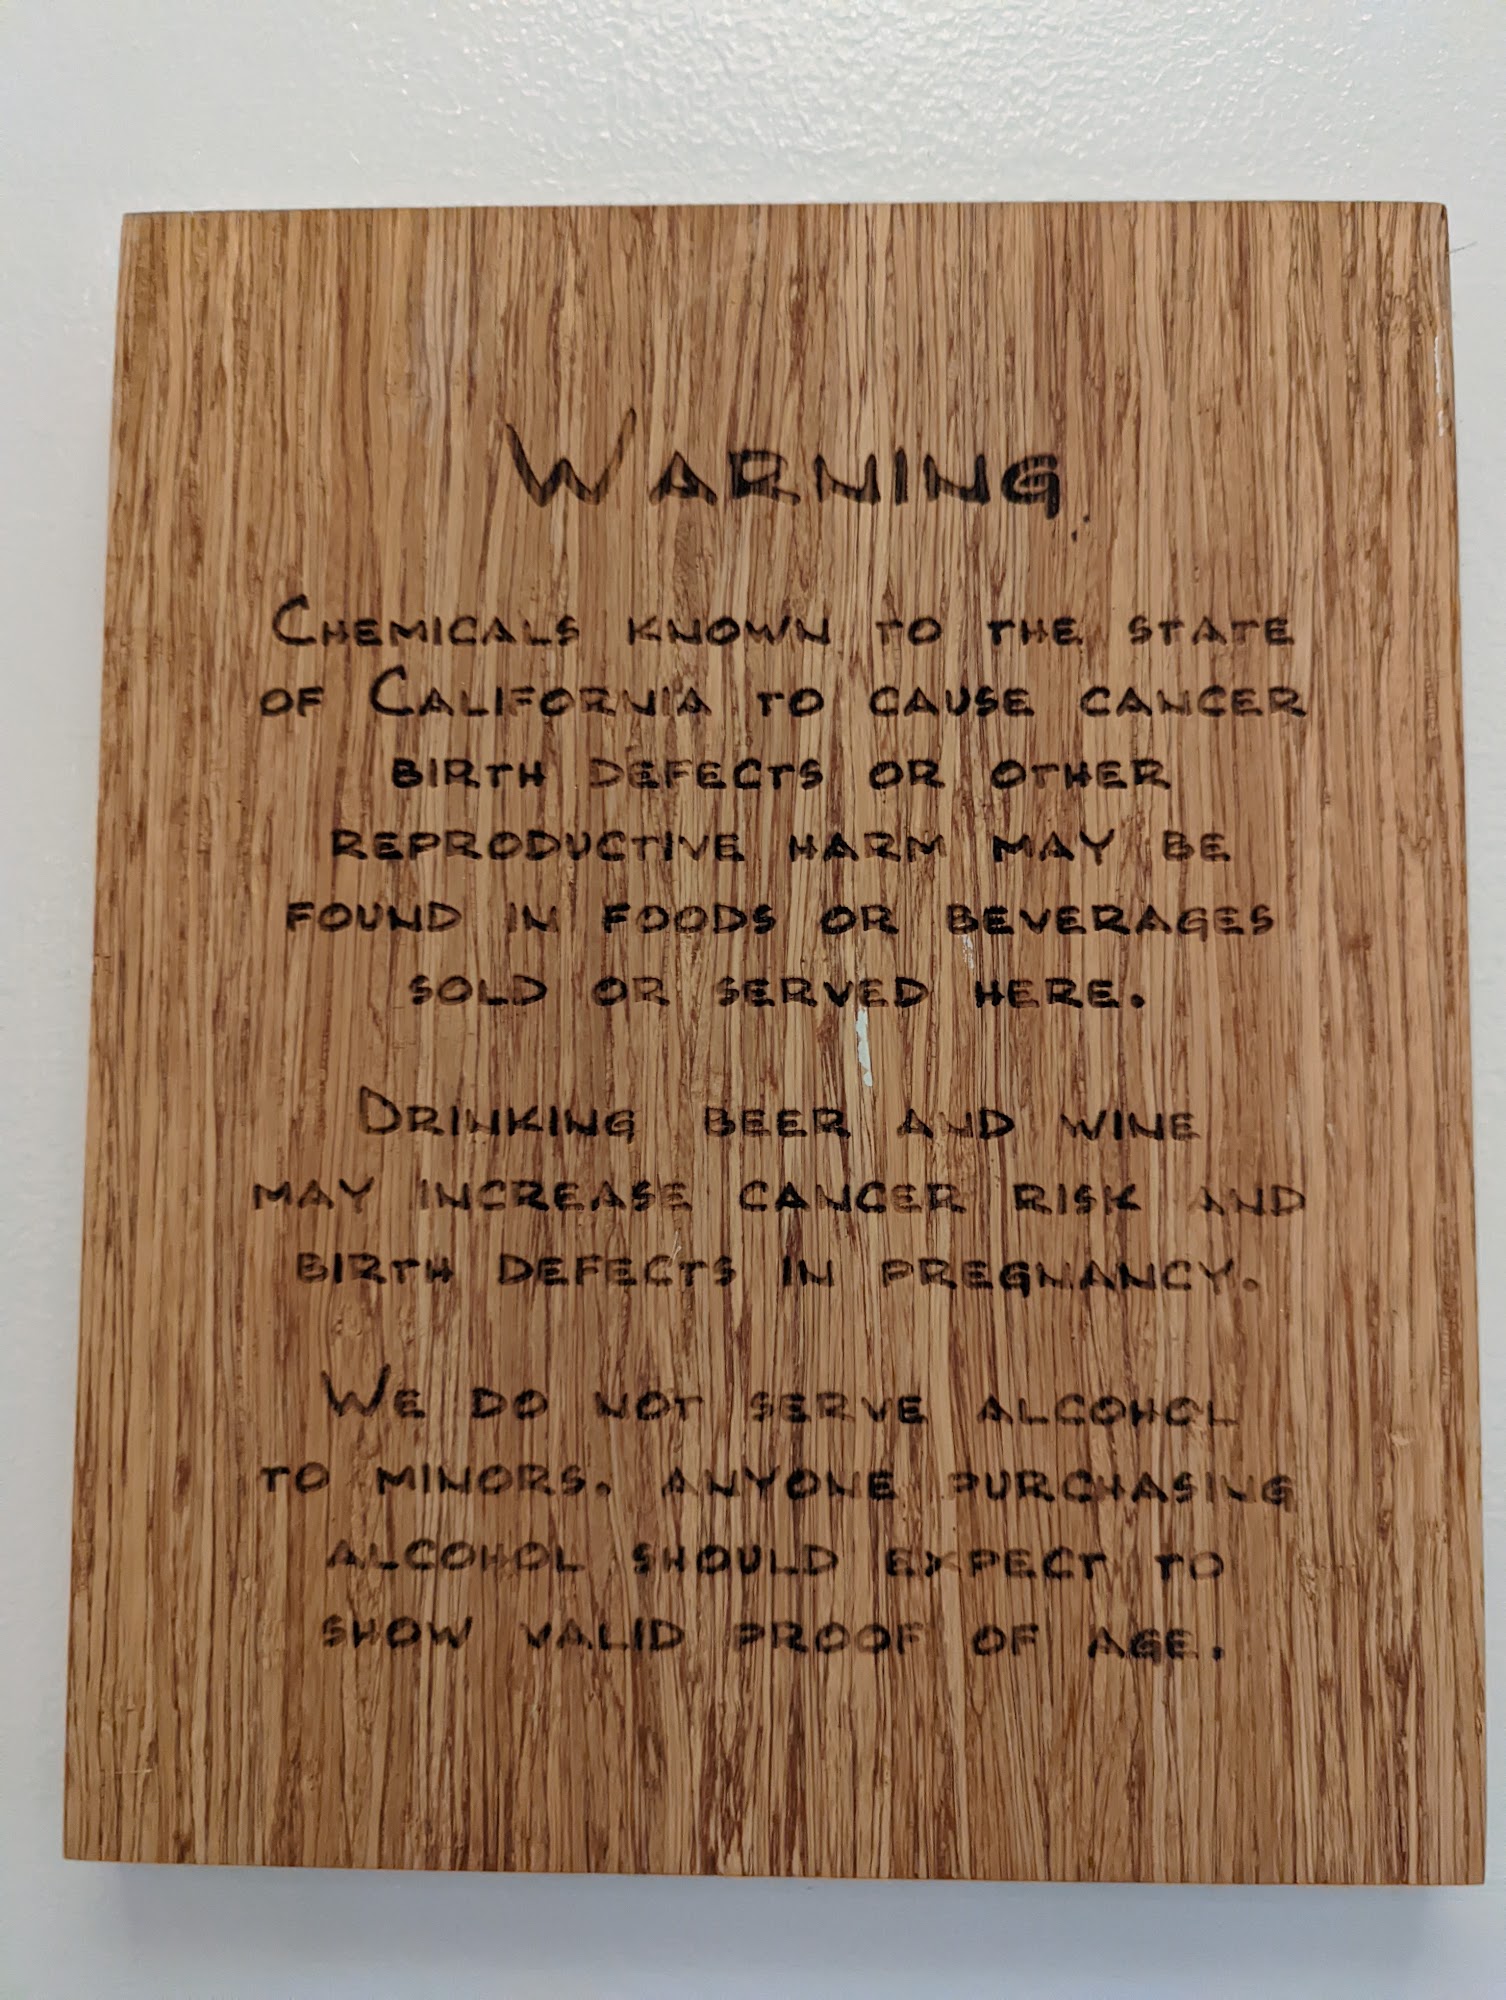 Warning
Chemicals known to the state
of California to cause cancer
birth defects or other
reproductive harm may be
found in foods or beverages
sold or served here.
Drinking beer and wine
may increase cancer risk and
birth defects in pregnancy.
We do not serve alcohol
to minors. anyone purchasing
alcohol should expect to
show valid proof of age.